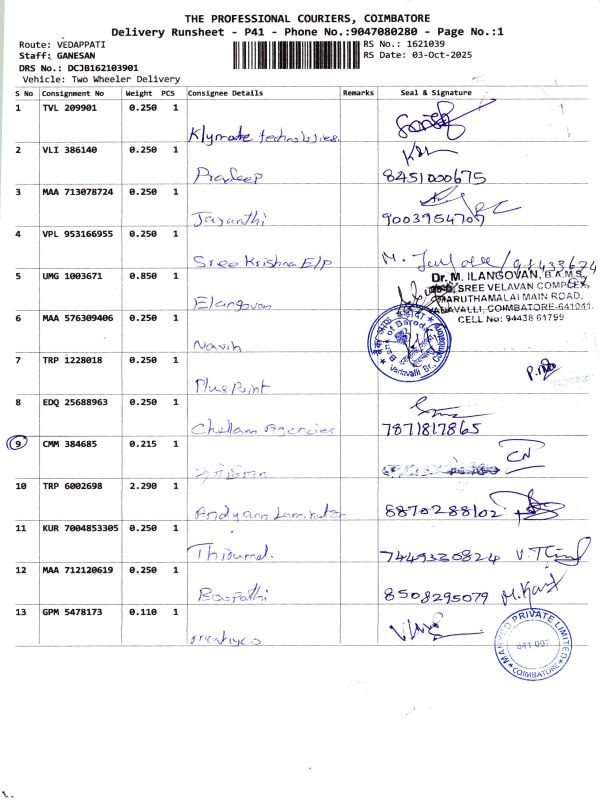 THE PROFESSIONAL COURIERS, COIMBATORE
Delivery Runsheet - P41 - Phone No.:9047080280 - Page No.:1
Route: VEDAPPATI
RS No.: 1621039
Staff: GANESAN
RS Date: 03-Oct-2025
DRS No.: DCJB162103901
Vehicle: Two Wheeler Delivery
S No Consignment No Weight PCS Consignee Details Remarks Seal & Signature
1 TVL 209901 0.250 1
Klymate technologies
2 VLI 386140 0.250 1
Pradeep 8451000675
3 MAA 713078724 0.250 1
Jayanthi 9003954709
4 VPL 953166955 0.250 1
Sree Krishna E/P M.
5 UMG 1003671 0.850 1
Dr. M. ILANGOVAN, B.A.M.S.
SREE VELAVAN COMPLEX,
MARUTHAMALAI MAIN ROAD,
VADAVALLI, COIMBATORE-641041.
CELL No: 94438 61799
Elangovan
6 MAA 576309406 0.250 1
Bank of Baroda
Vadavalli Br.
Navin
7 TRP 1228018 0.250 1
Plus Point
8 EDQ 25688963 0.250 1
Chellam Agencies 7871817865
9 CMM 384685 0.215 1
CN
10 TRP 6002698 2.290 1
8870288102
11 KUR 7004853305 0.250 1
Thirumal. 7449320824
12 MAA 712120619 0.250 1
Boopathi 8508295079
13 GPM 5478173 0.110 1
PRIVATE LIMITED
641 007
COIMBATORE